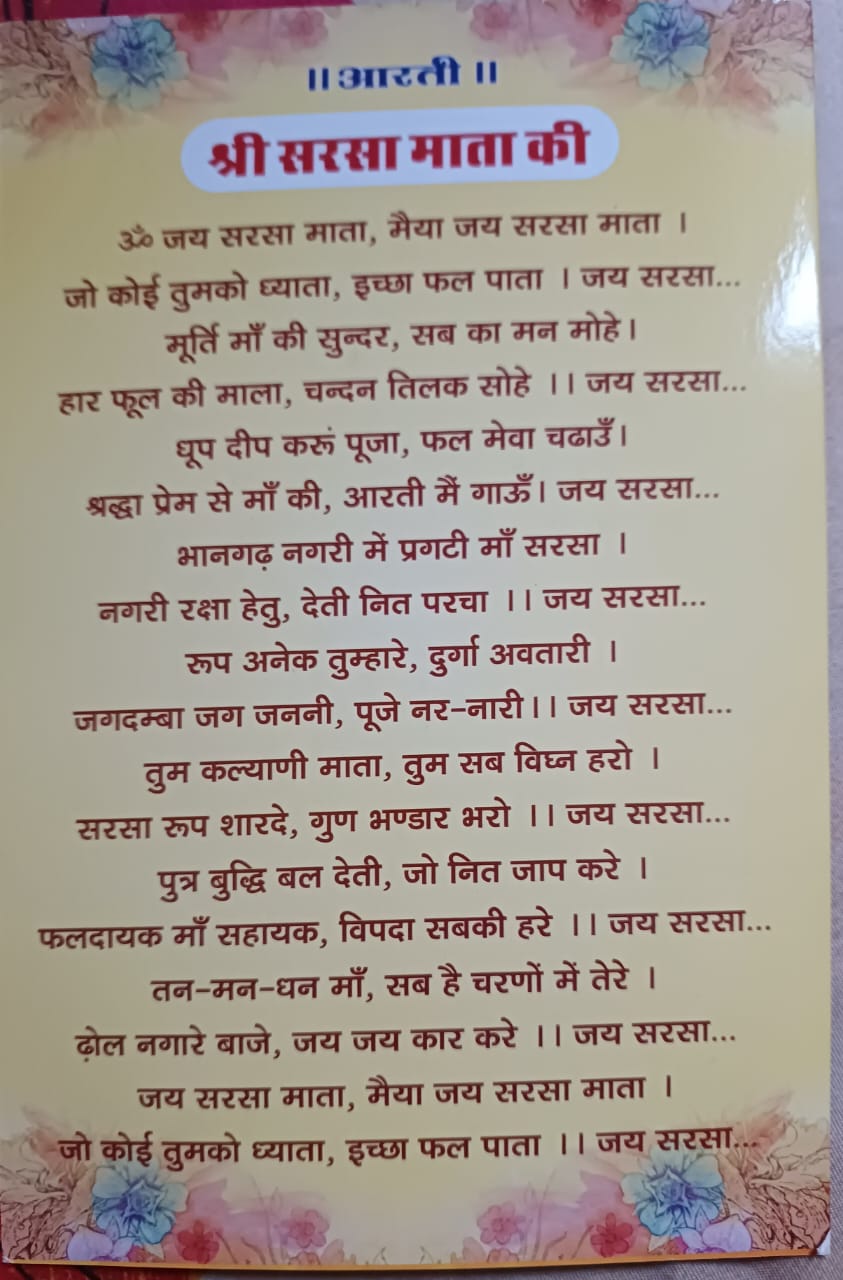 ॥ आरती ॥
श्री सरसा माता की
ॐ जय सरसा माता, मैया जय सरसा माता ।
जो कोई तुमको ध्याता, इच्छा फल पाता । जय सरसा...
मूर्ति माँ की सुन्दर, सब का मन मोहे।
हार फूल की माला, चन्दन तिलक सोहे ।। जय सरसा...
धूप दीप करूं पूजा, फल मेवा चढाउँ।
श्रद्धा प्रेम से माँ की, आरती मैं गाऊँ। जय सरसा...
भानगढ़ नगरी में प्रगटी माँ सरसा ।
नगरी रक्षा हेतु, देती नित परचा ।। जय सरसा...
रूप अनेक तुम्हारे, दुर्गा अवतारी ।
जगदम्बा जग जननी, पूजे नर-नारी।। जय सरसा...
तुम कल्याणी माता, तुम सब विघ्न हरो ।
सरसा रूप शारदे, गुण भण्डार भरो ।। जय सरसा...
पुत्र बुद्धि बल देती, जो नित जाप करे ।
फलदायक माँ सहायक, विपदा सबकी हरे ।। जय सरसा...
तन-मन-धन माँ, सब है चरणों में तेरे ।
ढ़ोल नगारे बाजे, जय जय कार करे ।। जय सरसा...
जय सरसा माता, मैया जय सरसा माता ।
जो कोई तुमको ध्याता, इच्छा फल पाता ।। जय सरसा...